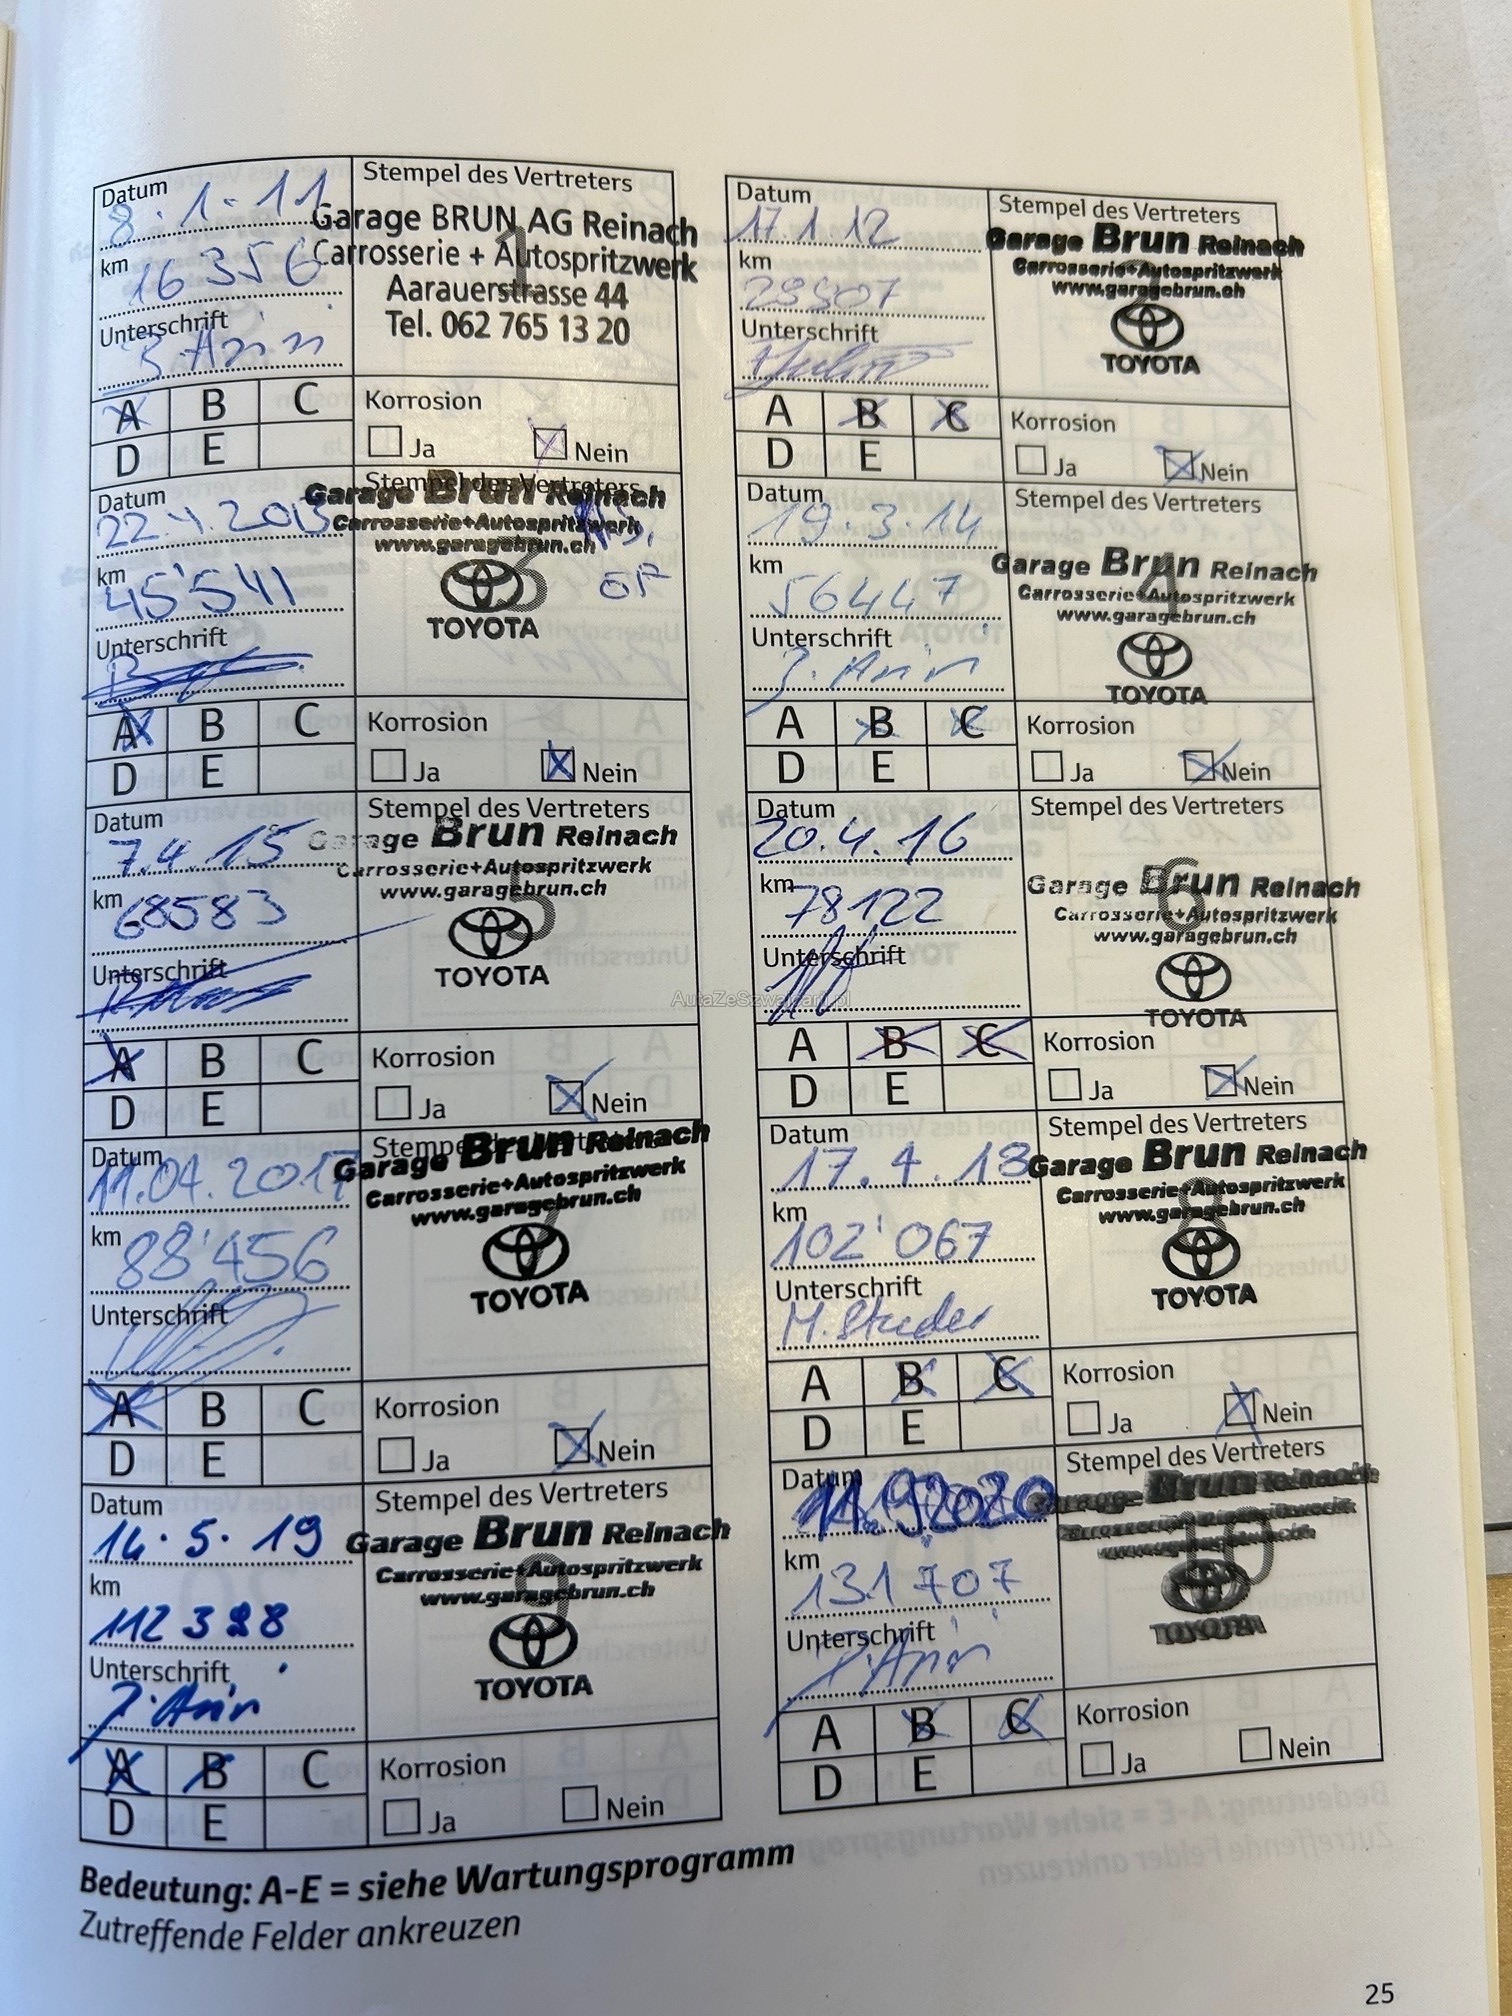 Datum 8.1.11
Stempel des Vertreters
Garage BRUN AG Reinach
Carrosserie + Autospritzwerk
Aarauerstrasse 44
Tel. 062 765 13 20
1
km 16356
Unterschrift
A B C
D E
Korrosion
Ja Nein
Datum 17 1 12
Stempel des Vertreters
Garage Brun Reinach
Carrosserie+Autospritzwerk
www.garagebrun.ch
TOYOTA
km
Unterschrift
A B C
D E
Korrosion
Ja Nein
Datum 22.4.2013
Stempel des Vertreters
Garage Brun Reinach
Carrosserie+Autospritzwerk
www.garagebrun.ch
3
TOYOTA
km 45'541
Unterschrift
A B C
D E
Korrosion
Ja Nein
Datum 19.3.14
Stempel des Vertreters
Garage Brun Reinach
Carrosserie+Autospritzwerk
www.garagebrun.ch
4
TOYOTA
km 56447
Unterschrift
A B C
D E
Korrosion
Ja Nein
Datum 7.4.15
Stempel des Vertreters
Garage Brun Reinach
Carrosserie+Autospritzwerk
www.garagebrun.ch
5
TOYOTA
km 68583
Unterschrift
A B C
D E
Korrosion
Ja Nein
Datum 20.4.16
Stempel des Vertreters
Garage Brun Reinach
Carrosserie+Autospritzwerk
www.garagebrun.ch
6
TOYOTA
km 78122
Unterschrift
AutaZeSzwajcarii.pl
A B C
D E
Korrosion
Ja Nein
Datum 11.04.2017
Stempel des Vertreters
Garage Brun Reinach
Carrosserie+Autospritzwerk
www.garagebrun.ch
7
TOYOTA
km 88'456
Unterschrift
A B C
D E
Korrosion
Ja Nein
Datum 17.4.18
Stempel des Vertreters
Garage Brun Reinach
Carrosserie+Autospritzwerk
www.garagebrun.ch
8
TOYOTA
km 102'067
Unterschrift
M. Studer
A B C
D E
Korrosion
Ja Nein
Datum 14.5.19
Stempel des Vertreters
Garage Brun Reinach
Carrosserie+Autospritzwerk
www.garagebrun.ch
9
TOYOTA
km 112 3
Unterschrift
A B C
D E
Korrosion
Ja Nein
Datum 2020
Stempel des Vertreters
Garage Brun Reinach
10
TOYOTA
km 131707
Unterschrift
A B C
D E
Korrosion
Ja Nein
Bedeutung: A-E = siehe Wartungsprogramm
Zutreffende Felder ankreuzen
25